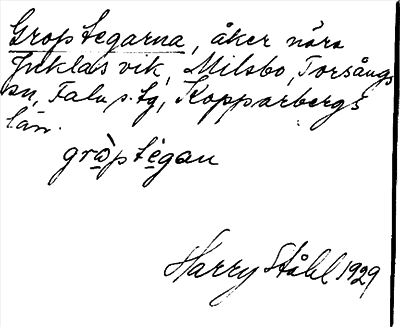 Groptegarna, åker nära
Juklasvik, Milsbo, Torsångs
sn, Falu s. tg, Kopparbergs
län.
grò̱pte̱gan
Harry Ståhl 1929